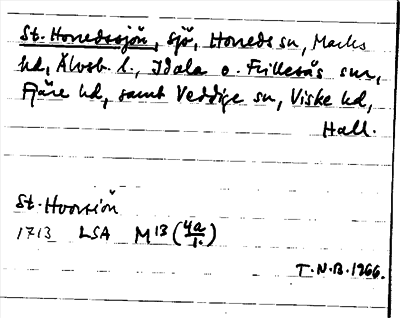 St. Horredssjön, sjö, Horreds sn, Marks
hd, Älvsb. l., Idala o. Frillesås snr,
Fjäre hd, samt Veddige sn, Viske hd,
Hall.
St. Hvorsiön
1713 LSA M13 (4a/1.)
T.N.B. 1966.